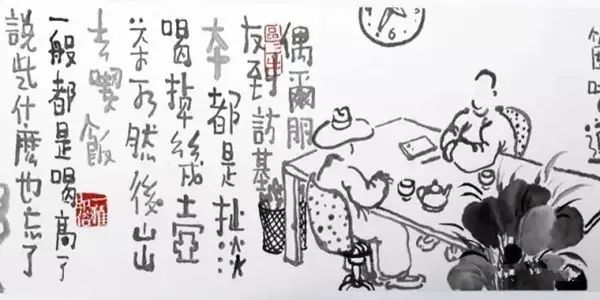 偶爾朋
友到訪基
本都是扯淡
喝掉幾壺
茶水然後出
去喫飯
一般都是喝高了
說些什麼也忘了
6